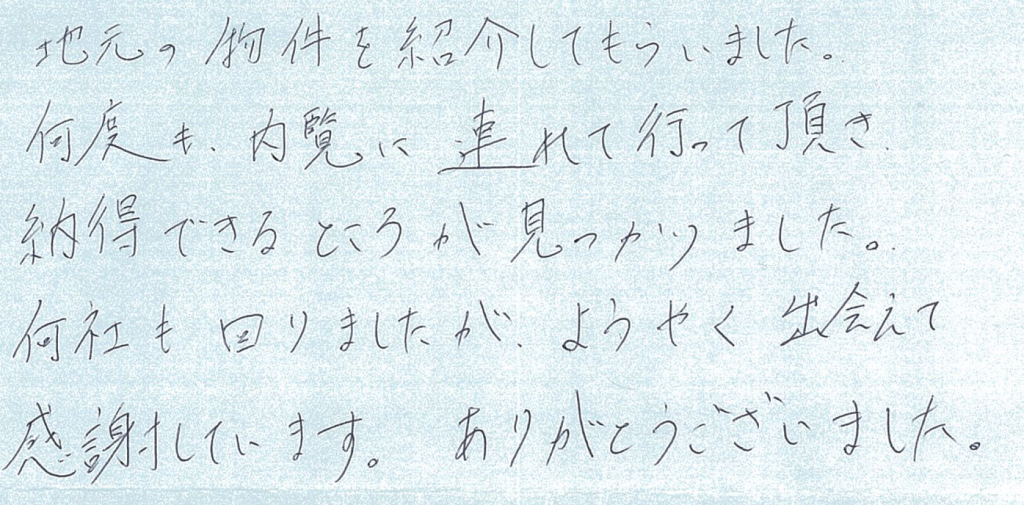 地元の物件を紹介してもらいました。
何度も、内覧に連れて行って頂き
納得できるところが見つかりました。
何社も回りましたが、ようやく出会えて
感謝しています。 ありがとうございました。